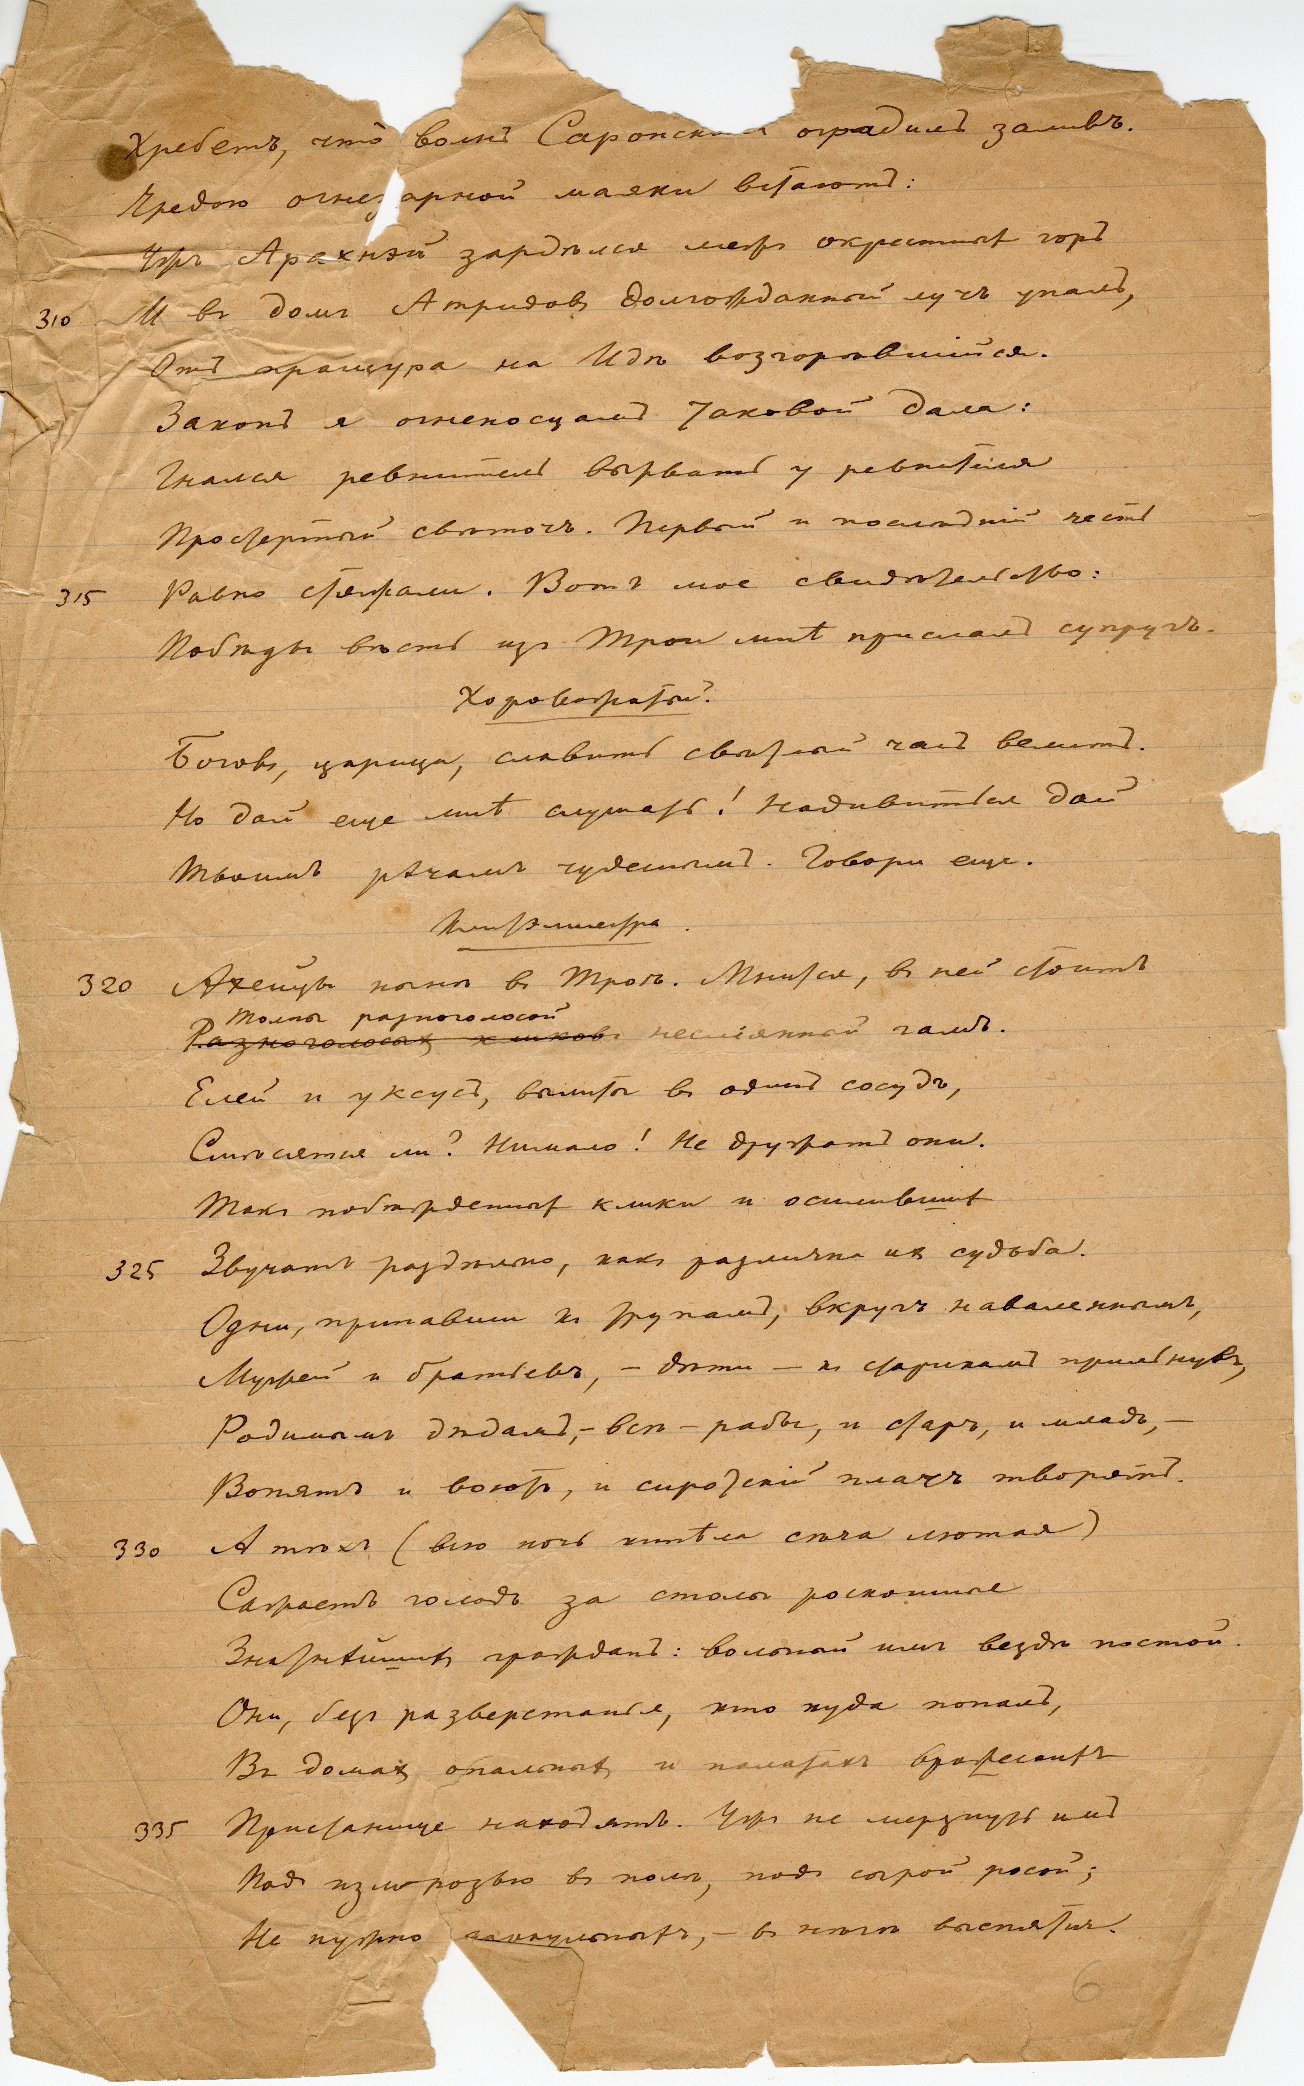 Хребетъ, что волнъ Саронскихъ оградилъ заливъ.
Чредою огнезарной маяки встаютъ:
Ужъ Арахнэй зардѣлся межъ окрестныхъ горъ
310 И въ домъ Атридовъ долгожданный лучъ упалъ,
Отъ пращура на Идѣ возгорѣвшійся.
Законъ я огненосцамъ таковой дала:
Гнался ревнитель вырвать у ревнителя
Простертый свѣточъ. Первый и послѣдній честь
315 Равно стяжали. Вотъ мое свидѣтельство:
Побѣды вѣсть изъ Трои мнѣ прислалъ супругъ.
Хоровожатый.
Боговъ, царица, славить свѣтлый часъ велитъ.
Но дай еще мнѣ слушать! Надивиться дай
Твоимъ рѣчамъ чудеснымъ. Говори еще.
Клитэмнестра.
320 Ахейцы нынѣ въ Троѣ. Мнится, въ ней стоитъ
Толпы разноголосой
Разноголосыхъ кликовъ несліянный гамъ.
Елей и уксусъ, вылиты въ одинъ сосудъ,
Смѣсятся ли? Нимало! Не дружатъ они.
Такъ побѣжденныхъ клики и осилившихъ
325 Звучатъ раздѣльно, какъ различна ихъ судьба.
Одни, припавши къ трупамъ, вкругъ наваленнымъ,
Мужей и братьевъ, – дѣти – къ старикамъ прильнувъ,
Родимымъ дѣдамъ, – всѣ – рабы, и старъ, и младъ, –
Вопятъ и воютъ, и сиротскій плачъ творятъ.
330 А тѣхъ (всю ночь кипѣла сѣча лютая)
Сажаетъ голодъ за столы роскошные
Знатнѣйшихъ гражданъ: вольный имъ вездѣ постой.
Они, безъ разверстанья, кто куда попалъ,
Въ домахъ опальныхъ и палатахъ брошенныхъ
335 Пристанище находятъ. Ужъ не мерзнуть имъ
Подъ изморозью въ полѣ, подъ сырой росой;
Не нужно караульныхъ, – въ нѣгѣ выспятся.
6